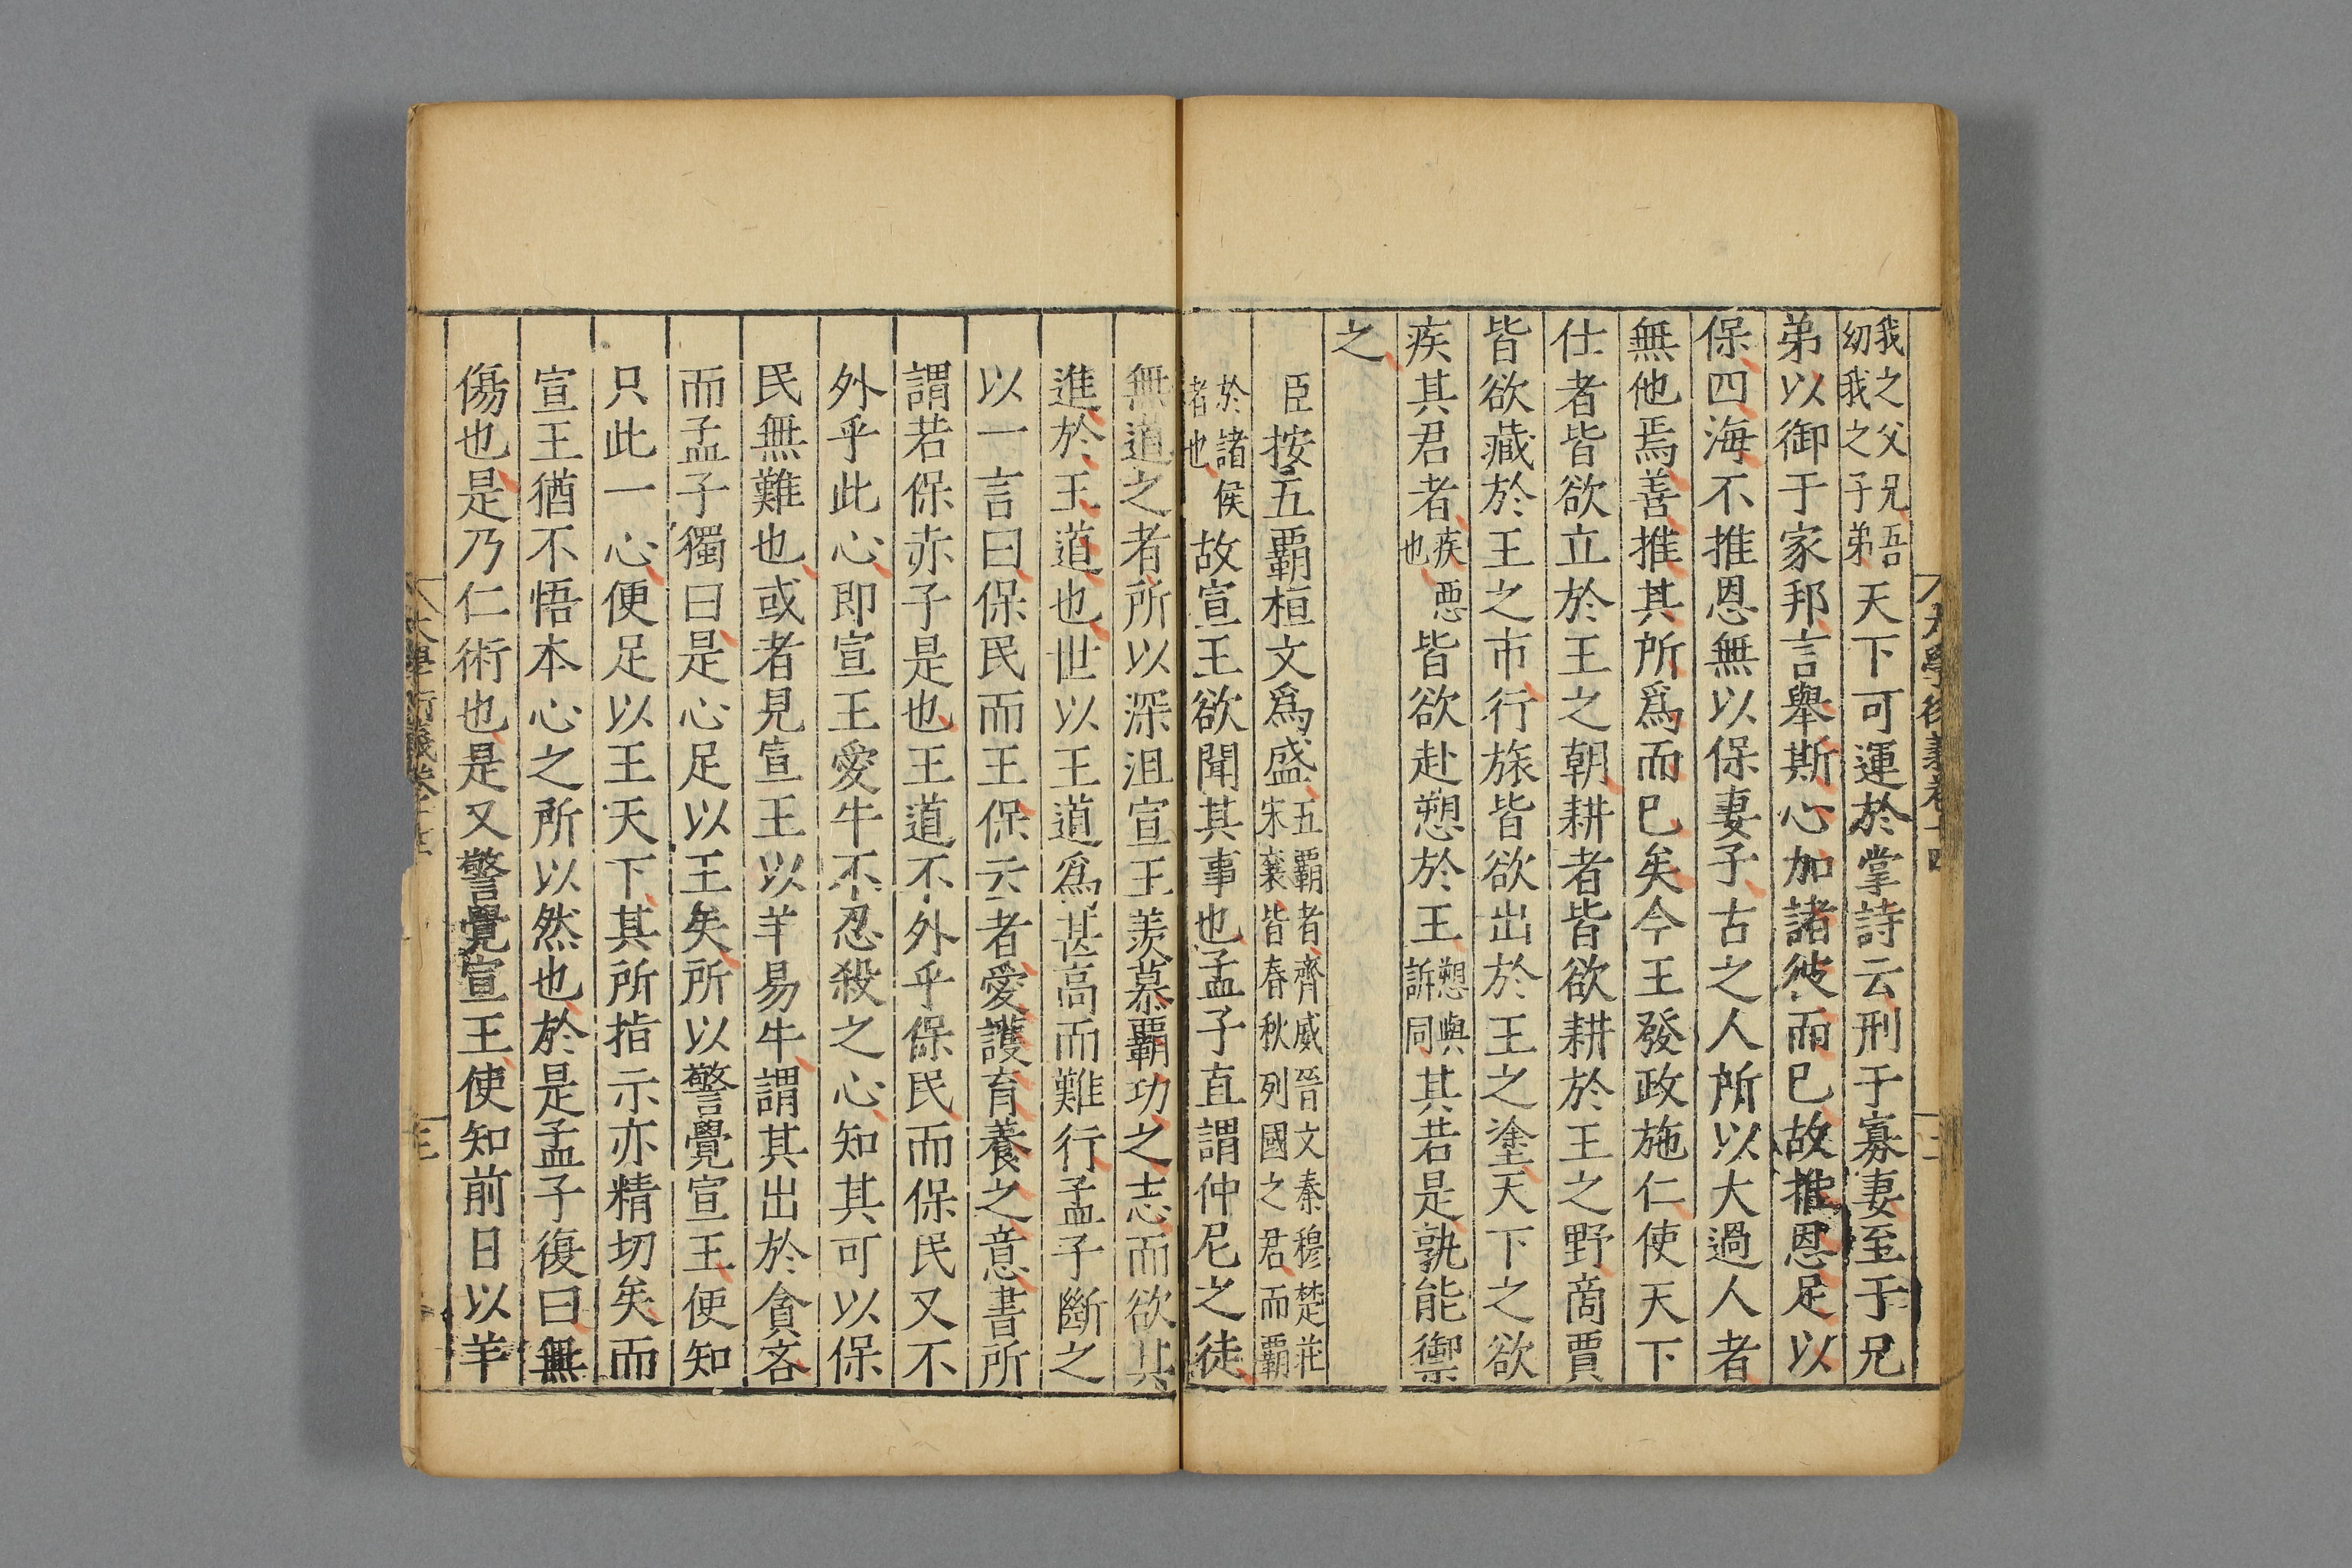 我之父兄吾幼我之子弟天下可運於掌詩云刑于寡妻至于兄
弟以御于家邦言舉斯心加諸彼而已故推恩足以
保四海不推恩無以保妻子古之人所以大過人者
無他焉善推其所爲而已矣今王發政施仁使天下
仕者皆欲立於王之朝耕者皆欲耕於王之野商賈
皆欲藏於王之市行旅皆欲出於王之塗天下之欲
疾其君者疾惡也皆欲赴愬於王愬與訴同其若是孰能禦
之
臣按五覇桓文爲盛五覇者齊威晉文秦穆楚莊宋襄皆春秋列國之君而覇
於諸侯者也故宣王欲聞其事也孟子直謂仲尼之徒
無道之者所以深沮宣王羨慕覇功之志而欲其
進於王道也世以王道爲甚高而難行孟子斷之
以一言曰保民而王保云者愛護育養之意書所
謂若保赤子是也王道不外乎保民而保民又不
外乎此心即宣王愛牛不忍殺之心知其可以保
民無難也或者見宣王以羊易牛謂其出於貪吝
而孟子獨曰是心足以王矣所以警覺宣王便知
只此一心便足以王天下其所指示亦精切矣而
宣王猶不悟本心之所以然也於是孟子復曰無
傷也是乃仁術也是又警覺宣王使知前日以羊